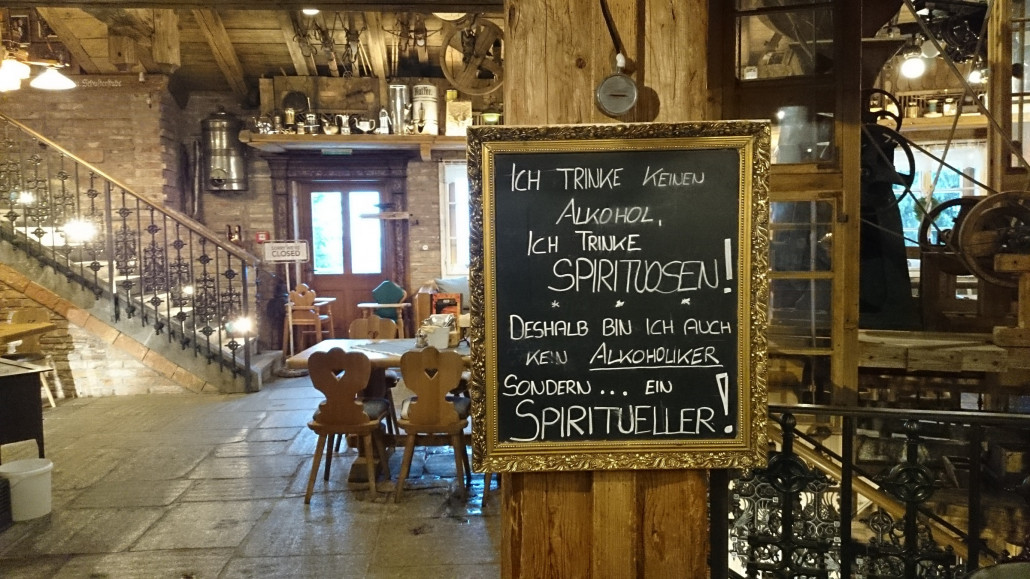 ICH TRINKE KEINEN
ALKOHOL,
ICH TRINKE
SPIRITUOSEN!
* * *
DESHALB BIN ICH AUCH
KEIN ALKOHOLIKER
SONDERN... EIN
SPIRITUELLER!
CLOSED